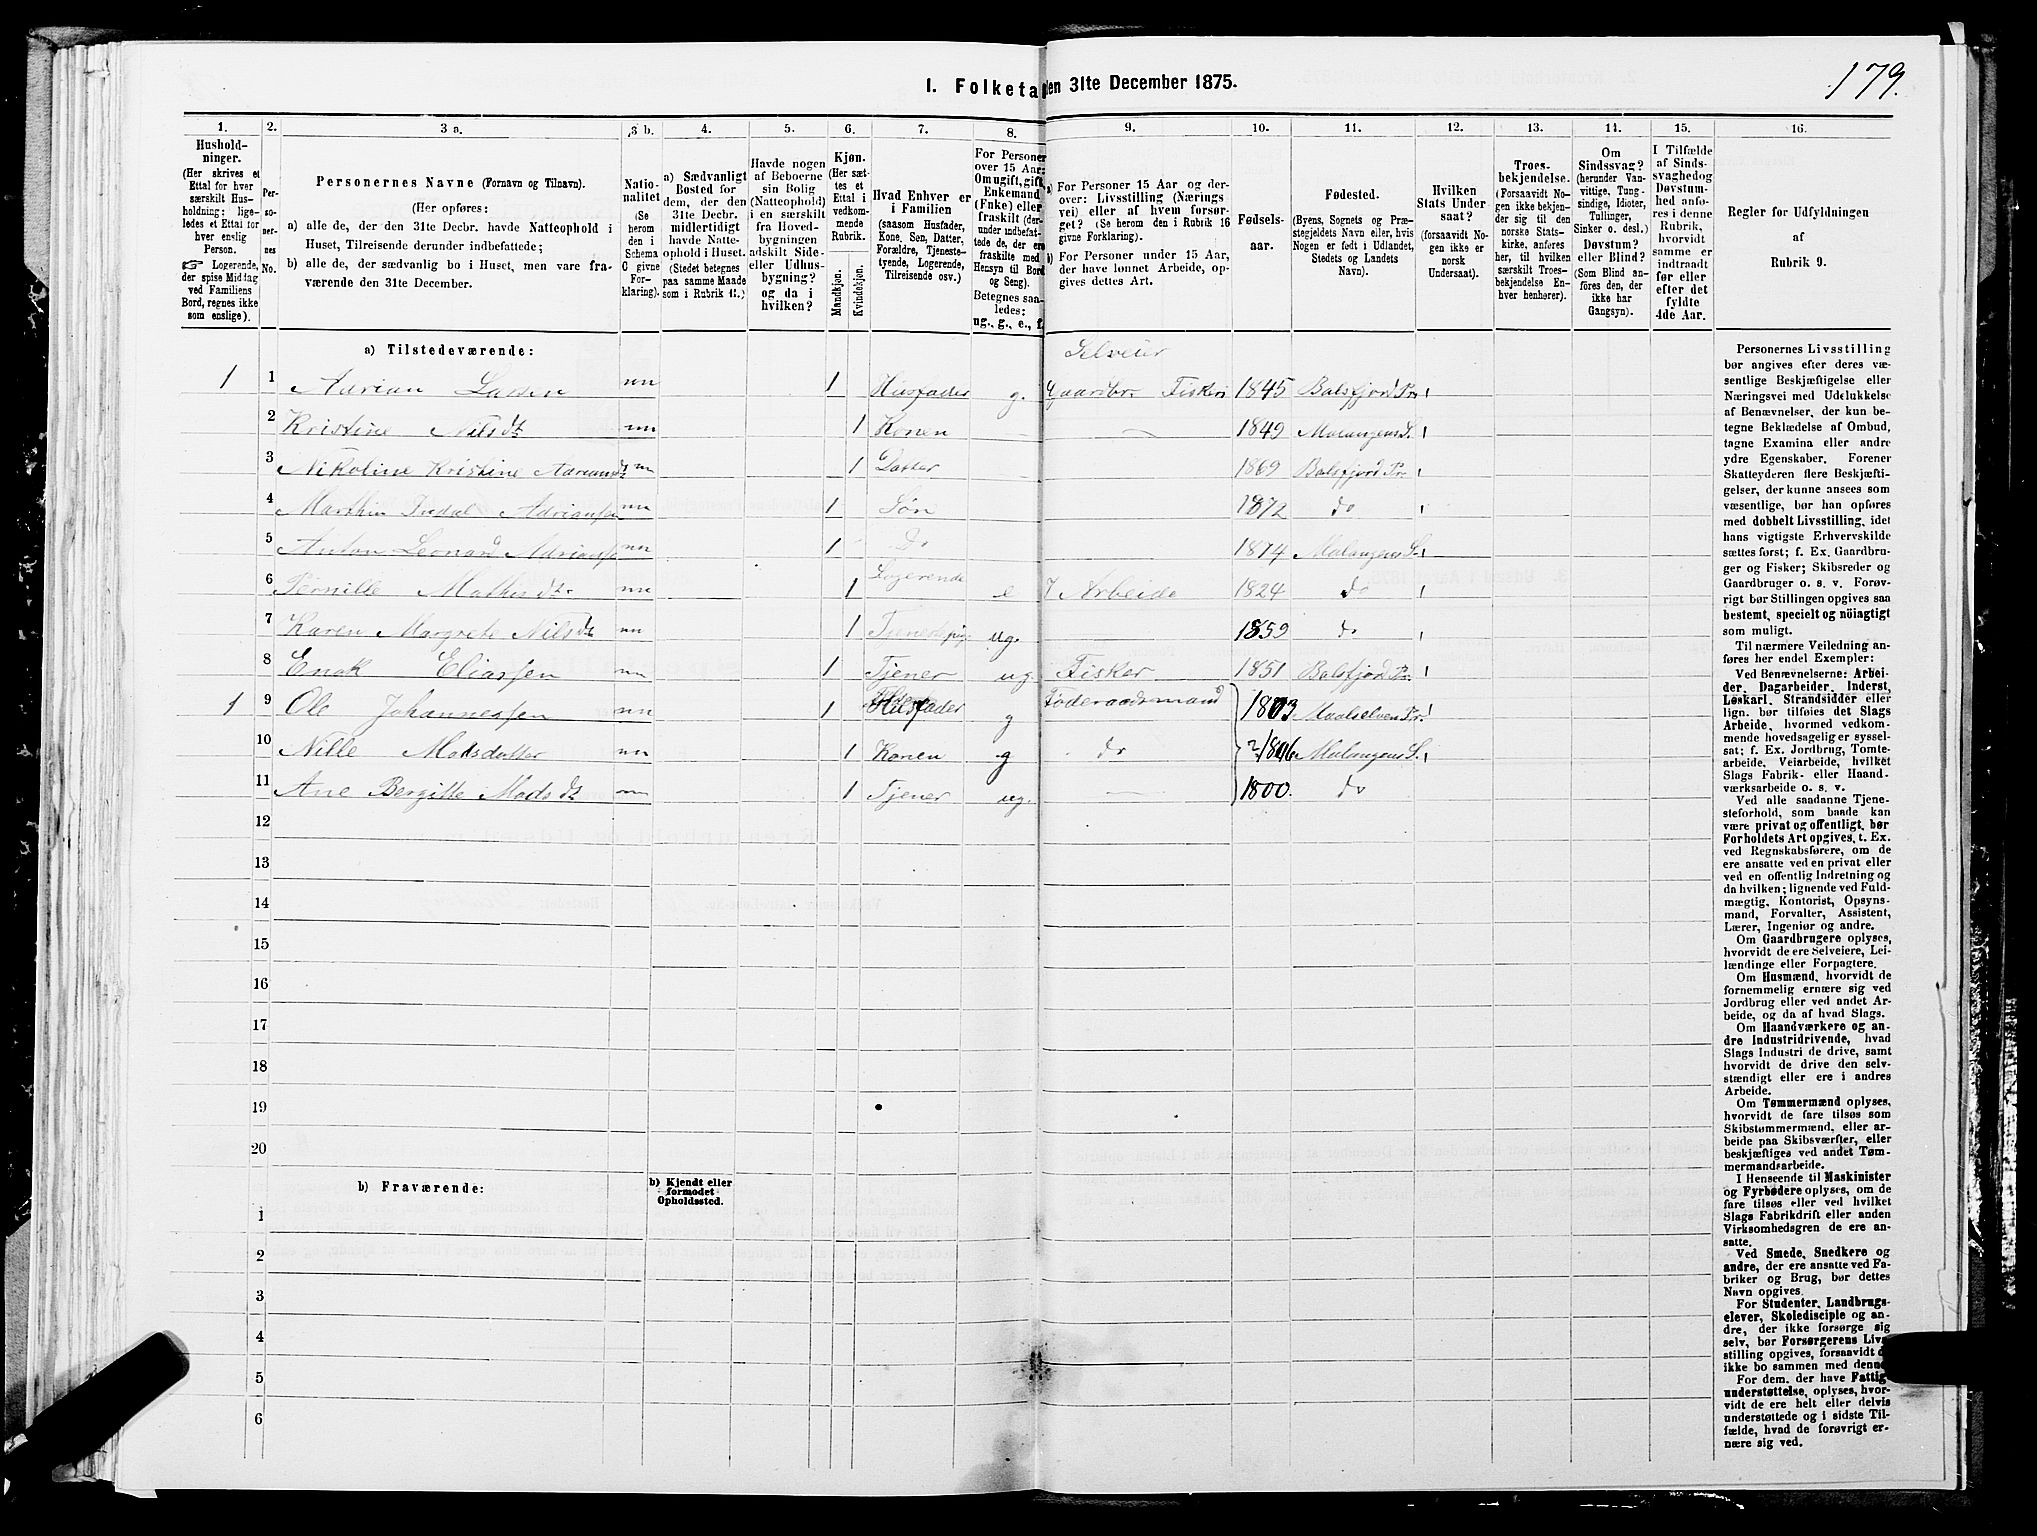 I. Folketa
den 31te December 1875.
179.
1.
2.
3 a.
3 b.
4.
5.
6.
7.
8.
9.
10.
11.
12.
13.
14.
15.
16.
Hushold-
ninger.
(Her skrives et
Ettal for hver
særskilt Hus-
holdning; lige-
ledes et Ettal for
hver enslig
Person.
☞ Logerende,
der spise Middag
ved Familiens
Bord, regnes ikke
som enslige).
Per-
so-
ner-
nes
No.
Personernes Navne (Fornavn og Tilnavn).
(Her opføres:
a) alle de, der den 31te Decbr. havde Natteophold i
Huset, Tilreisende derunder indbefattede;
b) alle de, der sædvanlig bo i Huset, men vare fra-
værende den 31te December.
Natio-
nalitet
(Se
herom
den i
Schema
C givne
For-
klaring).
a) Sædvanligt
Bosted for
dem, der den
31te Decbr.
midlertidigt
havde Natte-
ophold i Huset.
(Stedet betegnes
paa samme Maade
som i Rubrik 11.)
Havde nogen
af Beboerne
sin Bolig
(Natteophold)
i en særskilt
fra Hoved-
bygningen
adskilt Side-
eller Udhus-
bygning?
og da i
hvilken?
Kjøn.
(Her sæt-
tes et
Ettal i
vedkom-
mende
Rubrik.
Mandkjøn.
Kvindekjøn.
Hvad Enhver er
i Familien
(saasom Husfader,
Kone, Søn, Datter,
Forældre, Tjeneste-
tyende, Logerende,
Tilreisende osv.)
For Personer
over 15 Aar:
Om ugift, gift,
Enkemand
(Enke) eller
fraskilt (der-
under indbefat-
tede de, der ere
fraskilte med
Hensyn til Bord
og Seng).
Betegnes saa-
ledes:
ug., g., e., f.
a) For Personer 15 Aar og der-
over: Livsstilling (Nærings-
vei) eller af hvem forsør-
get? (Se herom den i Rubrik 16
givne Forklaring).
b) For Personer under 15 Aar,
der have lønnet Arbeide, op-
gives dettes Art.
Fødsels-
aar.
Fødested.
(Byens, Sognets og Præ-
stegjeldets Navn eller, hvis
Nogen er født i Udlandet,
Stedets og Landets
Navn).
Hvilken
Stats Under-
saat?
(forsaavidt No-
gen ikke er
norsk
Undersaat).
Troes-
bekjendelse.
(Forsaavidt No-
gen ikke bekjen-
der sig til den
norske Stats-
kirke, anføres
her, til hvilken
særskilt Troes-
bekjendelse En-
hver henhører).
Om
Sindssvag?
(herunder Van-
vittige, Tung-
sindige, Idioter,
Tullinger,
Sinker o. desl.)
Døvstum?
eller Blind?
(Som Blind an-
føres den, der
ikke har
Gangsyn).
I Tilfælde
af Sinds-
svaghed og
Døvstum-
hed anfø-
res i denne
Rubrik,
hvorvidt
samme er
indtraadt
før eller
efter det
fyldte
4de Aar.
Regler for Udfyldningen
af
Rubrik 9.
a) Tilstedeværende:
Selveier
1 1 Adrian Larsen nn 1 Husfader g. Gaardbr. Fisker 1845 Balsfjord Pr.
2 Kristine Nilsdt nn 1 Konen 1849 Malangens S.
3 Nikoline Kristine Adriansdt nn 1 Datter 1869 Balsfjord Pr.
4 Marthin Adriansen nn 1 Søn 1872 do
5 Anton Leonard Adriansen nn 1 Do 1874 Malangens S.
6 Pernille Mathisdt. nn 1 Logerende e Arbeide 1824 do
7 Karen Margrete Nilsdt nn 1 Tjenestepig. ug. 1859 do
8 Enok Eliassen nn 1 Tjener ug. Fisker 1851 Balsfjord Pr.
1 9 Ole Johannessen nn 1 Husfader g Føderaadsmand 1803 Maalselven Pr.
10 Nille Madsdatter nn 1 Konen g do 1806 Malangens S.
11 Ane Bergitte Madsdt nn 1 Tjener ug. 1800. do
12
13
14
15
16
17
18
19
20
b) Fraværende:
b) Kjendt eller
formodet
Opholdssted.
1
2
3
4
5
6
Personernes Livsstilling
bør angives efter deres væ-
sentlige Beskjæftigelse eller
Næringsvei med Udelukkelse
af Benævnelser, der kun be-
tegne Beklædelse af Ombud,
tagne Examina eller andre
ydre Egenskaber. Forener
Skatteyderen flere Beskjæfti-
gelser, der kunne ansees som
væsentlige, bør han opføres
med dobbelt Livsstilling, idet
hans vigtigste Erhvervskilde
sættes først; f. Ex. Gaardbru-
ger og Fisker; Skibsreder og
Gaardbruger o. s. v. Forøv-
rigt bør Stillingen opgives saa
bestemt, specielt og nöiagtigt
som muligt.
Til nærmere Veiledning an-
føres her endel Exempler:
Ved Benævnelserne: Arbei-
der, Dagarbeider, Inderst,
Løskarl, Strandsidder eller
lign. bør tilføies det Slags
Arbeide, hvormed vedkom-
mende hovedsagelig er syssel-
sat; f. Ex. Jordbrug, Tomte-
arbeide, Veiarbeide, hvilket
Slags Fabrik- eller Haand-
værksarbeide o. s. v.
Ved alle saadanne Tjene-
steforhold, som baade kan
være privat og offentligt, bør
Forholdets Art opgives, t. Ex.
ved Regnskabsførere, om de
ere ansatte ved en privat eller
ved en offentlig Indretning og
da hvilken; lignende ved Fuld-
mægtig, Kontorist, Opsyns-
mand, Forvalter, Assistent,
Lærer, Ingeniør og andre.
Om Gaardbrugere oplyses,
hvorvidt de ere Selveiere, Lei-
lændinge eller Forpagtere.
Om Husmænd, hvorvidt de
fornemmelig ernære sig ved
Jordbrug eller ved andet Ar-
beide, og da af hvad Slags.
Om Haandværkere og an-
dre Industridrivende, hvad
Slags Industri de drive, samt
hvorvidt de drive den selv-
stændigt eller ere i andres
Arbeide.
Om Tømmermænd oplyses,
hvorvidt de fare tilsøs som
Skibstømmermænd, eller ar-
beide paa Skibsværfter, eller
beskjæftiges ved andet Tøm-
mermandsarbeide.
I Henseende til Maskinister
og Fyrbødere oplyses, om de
fare tilsøs eller ved hvilket
Slags Fabrikdrift eller anden
Virksomhedsgren de ere an-
satte.
Ved Smede, Snedkere og
andre, der ere ansatte ved Fa-
briker og Brug, bør dettes
Navn opgives.
For Studenter, Landbrugs-
elever, Skoledisciple og an-
dre, der ikke forsørge sig
selv, bør Forsørgerens Livs-
stilling opgives, forsaavidt d
ikke bo sammen med denne.
For dem, der have Fattig-
understøttelse, oplyses, hvor-
vidt de ere helt eller delvis
understøttede og i sidste Til-
fælde, hvad de forøvrigt er-
nære sig ved.